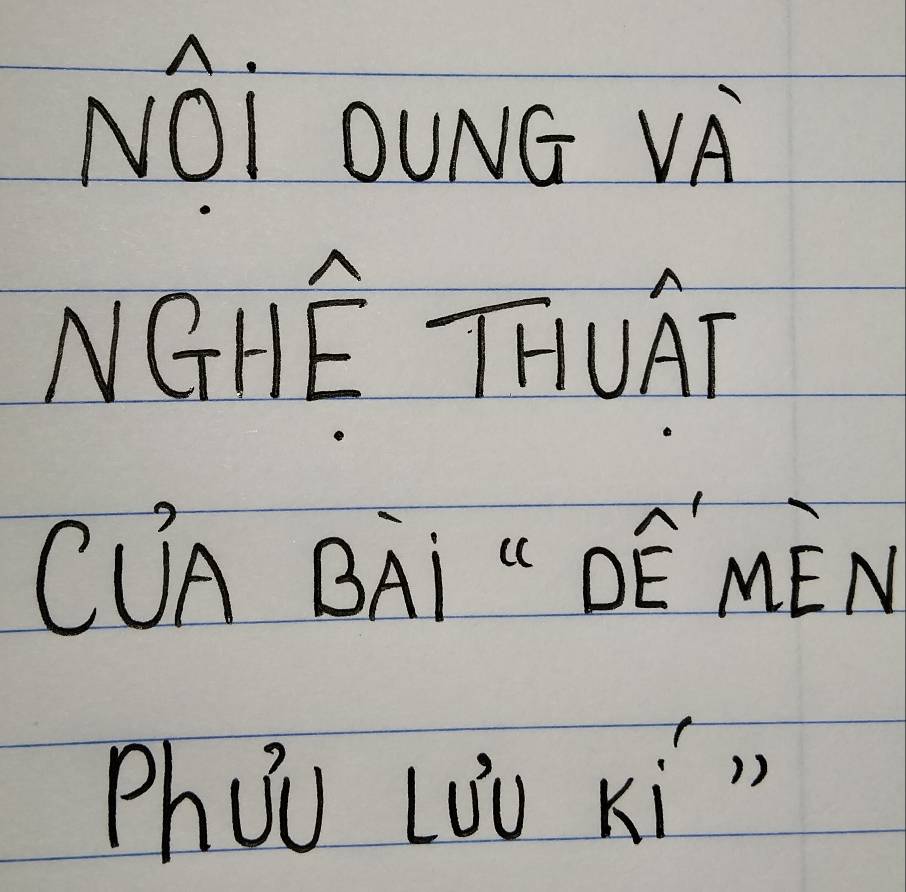 NỘI DUNG VÀ
NGHỆ THUẬT
CỦA BÀI “DẾ MÈN
PhƯỬU LƯỬU KÍ”